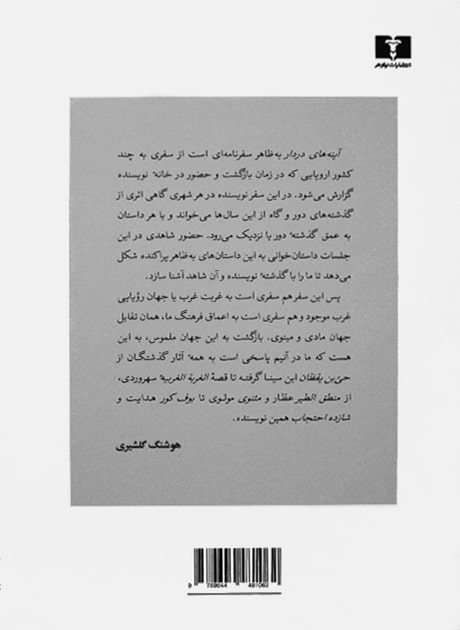 انتشارات نیلوفر
آینه‌های دردار به‌ظاهر سفرنامه‌ای است از سفری به چند
کشور اروپایی که در زمان بازگشت و حضور در خانهٔ نویسنده
گزارش می‌شود. در این سفر نویسنده در هر شهری گاهی اثری از
گذشته‌های دور و گاه از این سال‌ها می‌خواند و با هر داستان
به عمق گذشتهٔ دور یا نزدیک می‌رود. حضور شاهدی در این
جلسات داستان‌خوانی به این داستان‌های به‌ظاهر پراکنده شکل
می‌دهد تا ما را با گذشتهٔ نویسنده و آن شاهد آشنا سازد.
پس این سفر هم سفری است به غربت غرب یا جهان رؤیایی
غرب موجود و هم سفری است به اعماق فرهنگ ما، همان تقابل
جهان مادی و مینوی. بازگشت به این جهان ملموس، به این
هست که ما در آنیم پاسخی است به همهٔ آثار گذشتگان از
حی‌بن یقظان ابن سینا گرفته تا قصهٔ الغربة الغربیهٔ سهروردی،
از منطق الطیر عطار و مثنوی مولوی تا بوف کور هدایت و
شازده احتجاب همین نویسنده.
هوشنگ گلشیری
9 789644 481062